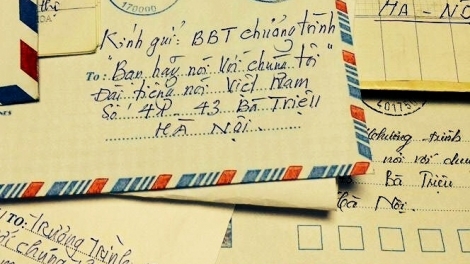 Kính gửi: BBT chương trình
"Bạn hãy nói với chúng tôi"
To:
Đài tiếng nói Việt Nam
Số 43 Bà Triệu
HÀ NỘI
HA - NO
170000
chương trình
nói với chú
Bà Triệu
Hà Nội
TO: Trương Trình